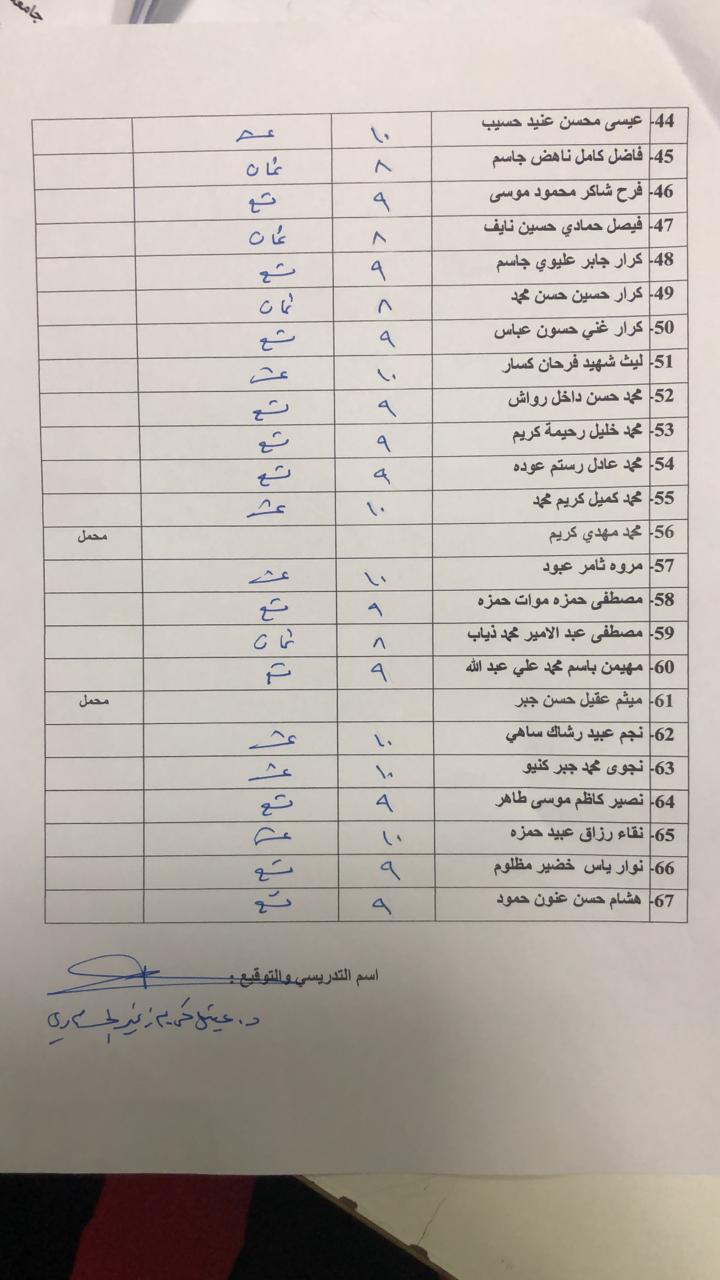 جامعة
44- عيسى محسن عنيد حسيب ١٠ عشر
45- فاضل كامل ناهض جاسم ٨ ثمان
46- فرح شاكر محمود موسى ٩ تسع
47- فيصل حمادي حسين نايف ٨ ثمان
48- كرار جابر عليوي جاسم ٩ تسع
49- كرار حسين حسن محمد ٨ ثمان
50- كرار غني حسون عباس ٩ تسع
51- ليث شهيد فرحان كسار ١٠ عشر
52- محمد حسن داخل رواش ٩ تسع
53- محمد خليل رحيمة كريم ٩ تسع
54- محمد عادل رستم عوده ٩ تسع
55- محمد كميل كريم محمد ١٠ عشر
56- محمد مهدي كريم محمل
57- مروه ثامر عبود ١٠ عشر
58- مصطفى حمزه موات حمزه ٩ تسع
59- مصطفى عبد الامير محمد ذياب ٨ ثمان
60- مهيمن باسم محمد علي عبد الله ٩ تسع
61- ميثم عقيل حسن جبر محمل
62- نجم عبيد رشاك ساهي ١٠ عشر
63- نجوى محمد جبر كنيو ١٠ عشر
64- نصير كاظم موسى طاهر ٩ تسع
65- نقاء رزاق عبيد حمزه ١٠ عشر
66- نوار ياس خضير مظلوم ٩ تسع
67- هشام حسن عنون حمود ٩ تسع
اسم التدريسي والتوقيع :
د.